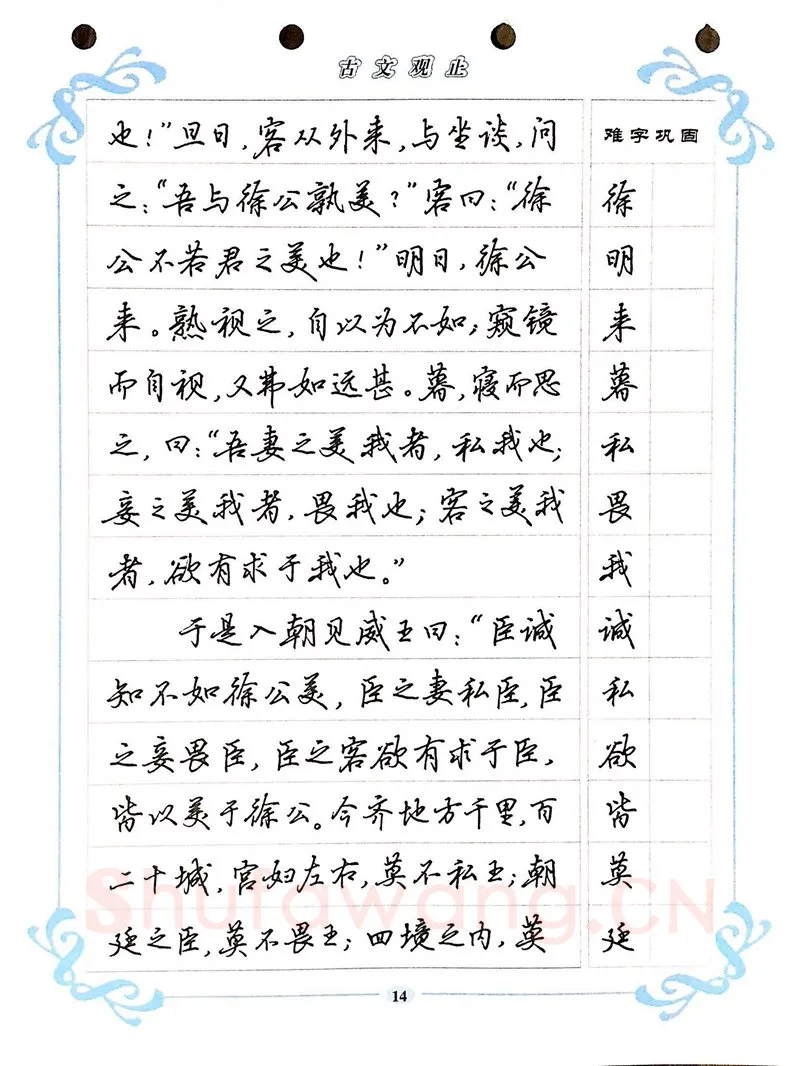 古文观止
也！”旦日，客从外来，与坐谈，问
之：“吾与徐公孰美？”客曰：“徐
公不若君之美也！”明日，徐公
来。熟视之，自以为不如；窥镜
而自视，又弗如远甚。暮，寝而思
之，曰：“吾妻之美我者，私我也；
妾之美我者，畏我也；客之美我
者，欲有求于我也。”
于是入朝见威王曰：“臣诚
知不如徐公美，臣之妻私臣，臣
之妾畏臣，臣之客欲有求于臣，
皆以美于徐公。今齐地方千里，百
二十城，宫妇左右，莫不私王；朝
廷之臣，莫不畏王；四境之内，莫
难字巩固
徐
明
来
暮
私
畏
我
诚
私
欲
皆
莫
廷
Shufawang.CN
14